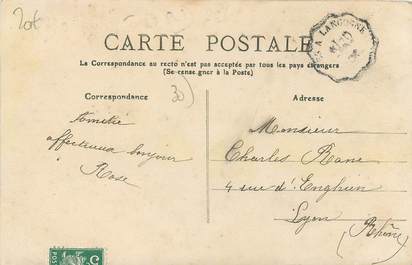 20f
CARTE POSTALE
La Correspondance au recto n'est pas acceptée par tous les pays étrangers
(Se renseigner à la Poste)
A LANGOGNE
Correspondance
30)
Amitié
affectueux bonjour
Rose
Adresse
Monsieur
Charles Rane
4 rue d'Enghien
Lyon
(Rhône)
5
POS